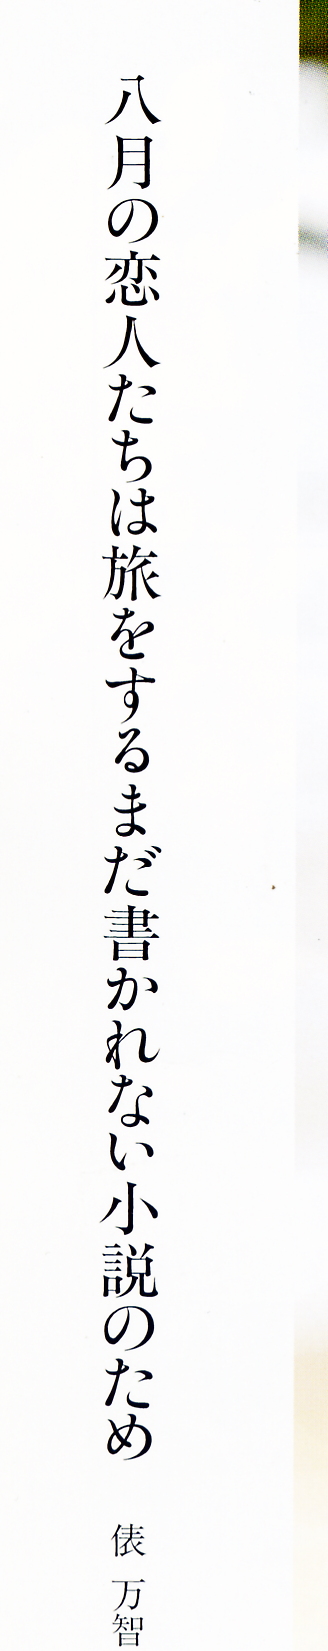 八月の恋人たちは旅をするまだ書かれない小説のため
俵 万智